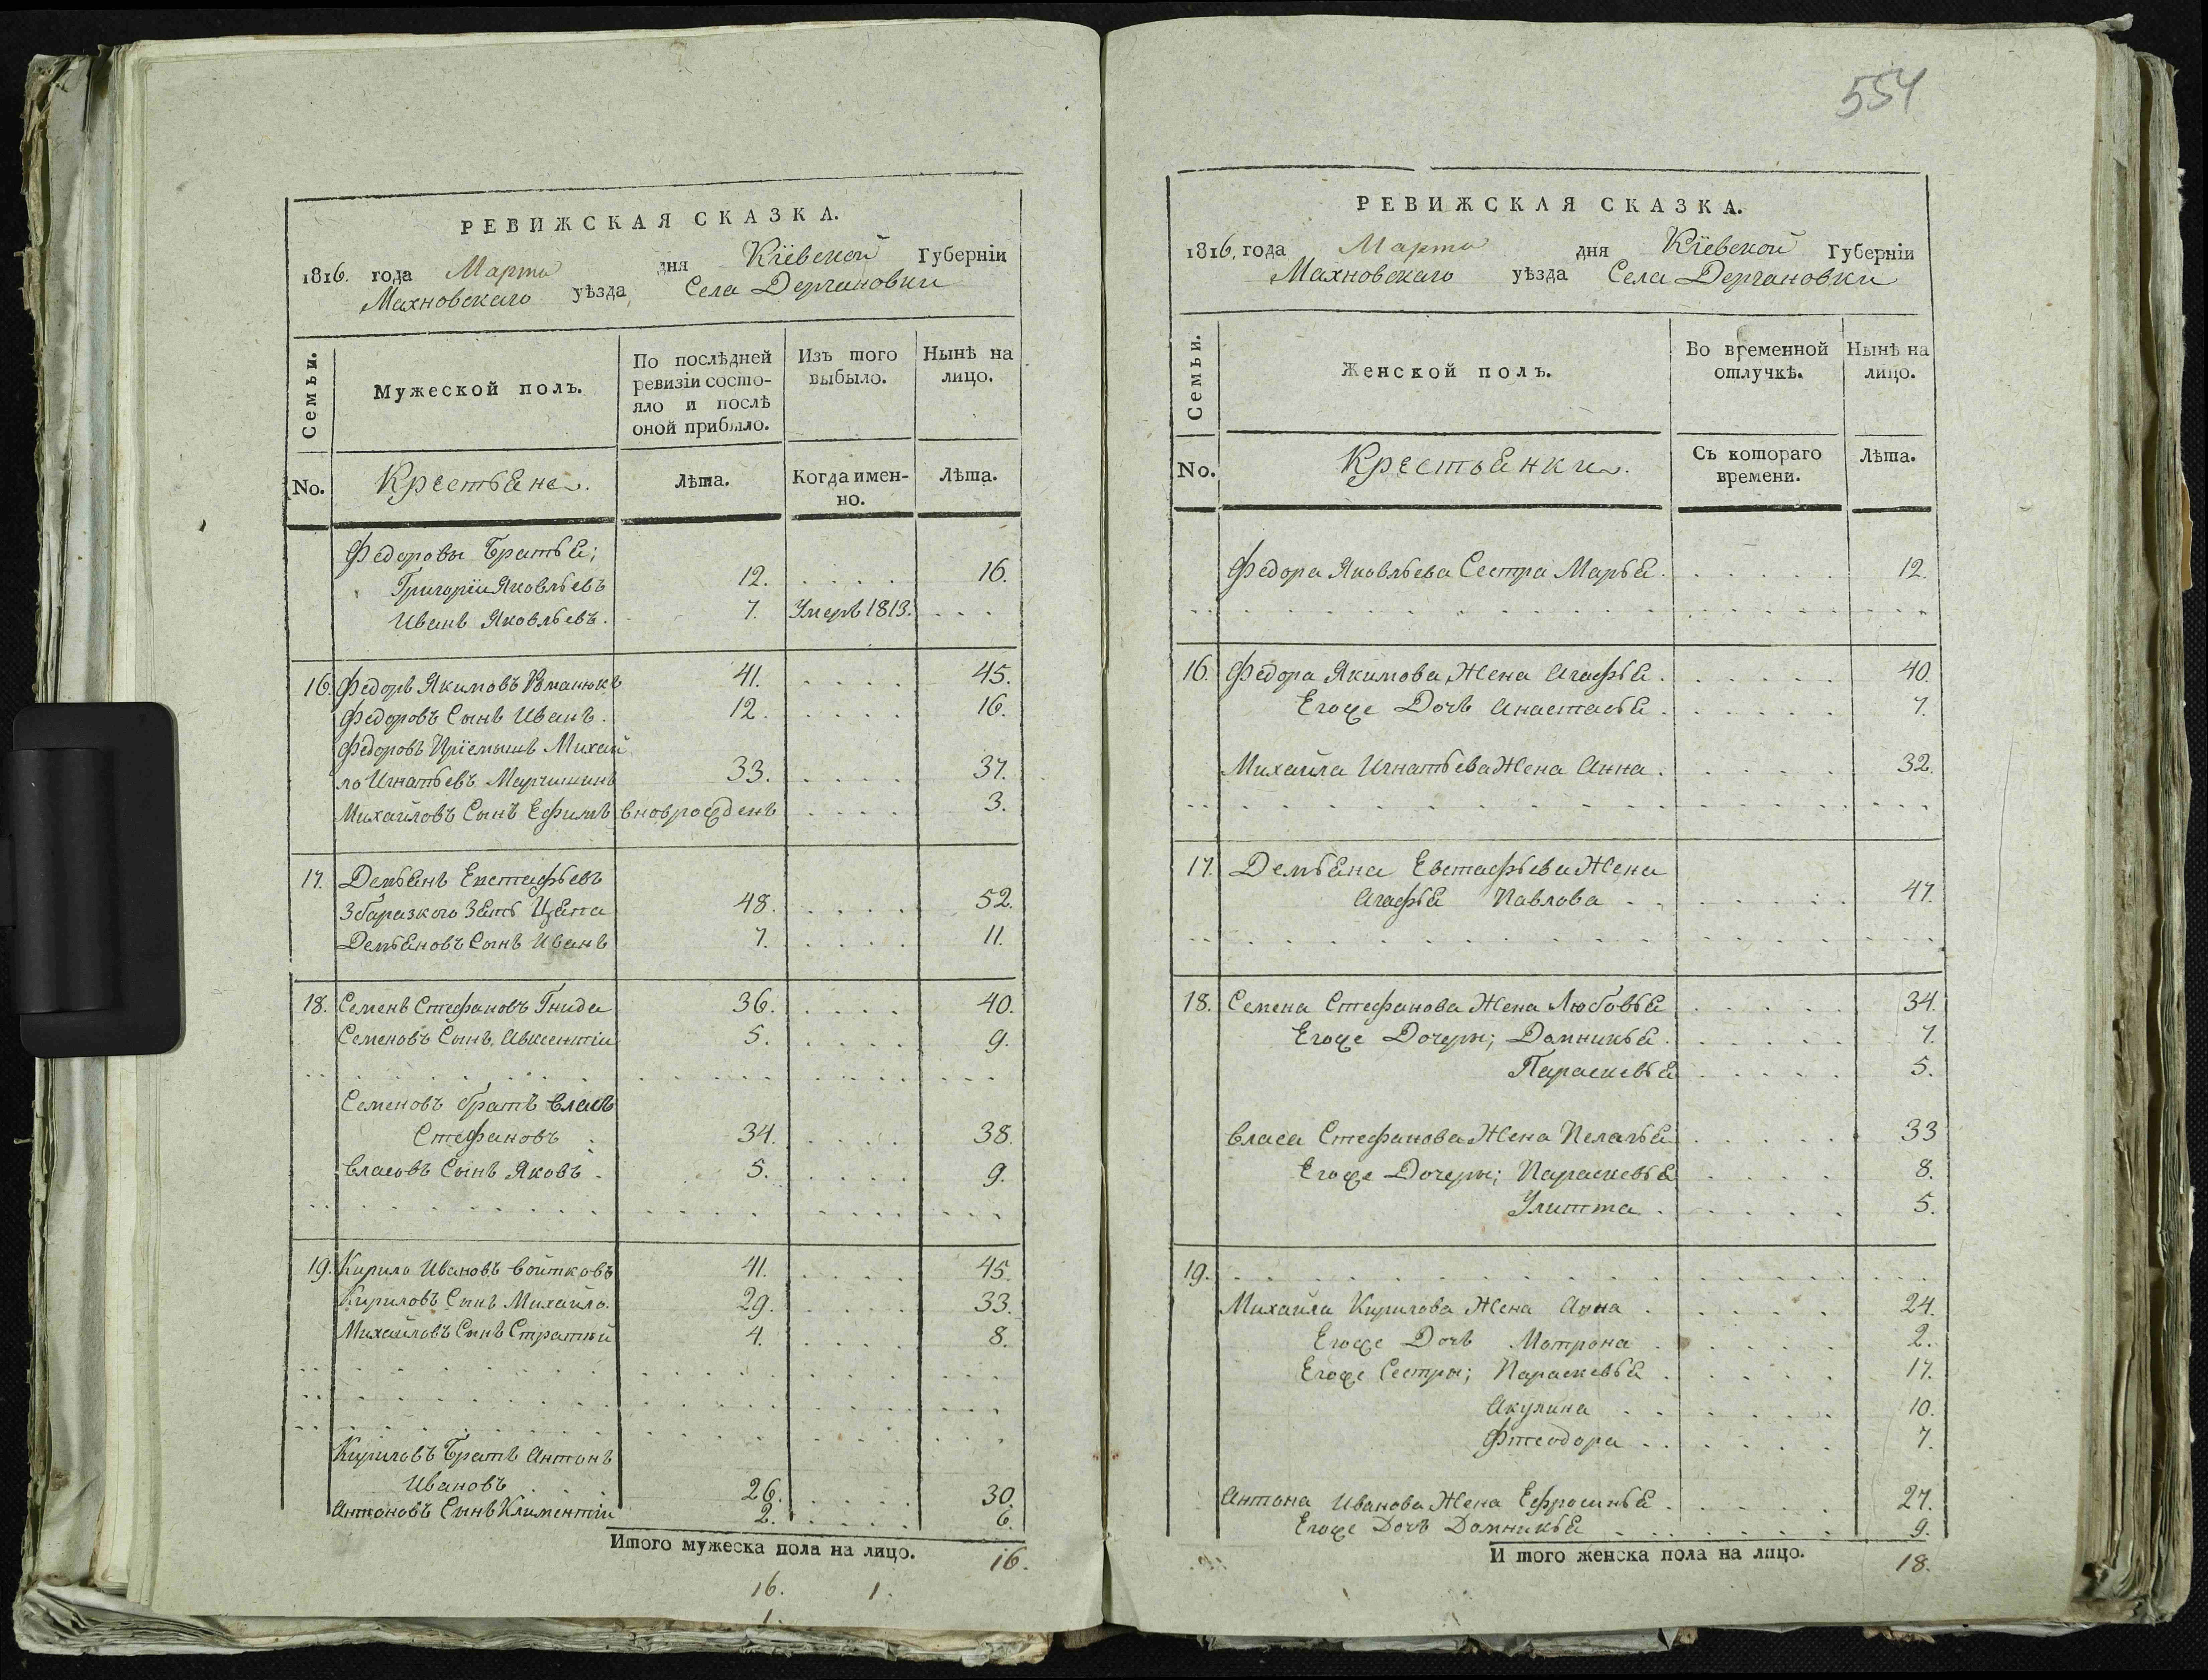 РЕВИЖСКАЯ СКАЗКА.
1816. года Марта дня Кіевской Губерніи
Махновскаго уѣзда, Села Дергановки
Семьи. Мужеской полъ. По послѣдней ревизіи состояло и послѣ оной прибыло. Изъ того выбыло. Нынѣ на лицо.
No. Крестьяне. Лѣта. Когда имен-но. Лѣта.
Федоровы Братья;
Григорій Яковльевъ 12. 16.
Иванъ Яковльевъ. 7. Умеръ 1813.
16. Федоръ Якимовъ 41. 45.
Федоровъ Сынъ Иванъ. 12. 16.
Федоровъ Пріемышъ Михай
ло Игнатьевъ Марчишинъ 33. 37.
Михайловъ Сынъ Ефимъ вноврожденъ 3.
17. Демьянъ Евстафьевъ
Збаразкого Зять 48. 52.
Демьяновъ Сынъ Иванъ 7. 11.
18. Семенъ Стефановъ Гнида 36. 40.
Семеновъ Сынъ Авксентій 5. 9.
Семеновъ братъ Власъ
Стефановъ 34. 38.
Власовъ Сынъ Яковъ. 5. 9.
19. Кирило Ивановъ Войтковъ 41. 45.
Кириловъ Сынъ Михайло. 29. 33.
Михайловъ Сынъ 4. 8.
Кириловъ Братъ Антонъ
Ивановъ 26. 30.
Антоновъ Сынъ Климентій 2. 6.
Итого мужеска пола на лицо. 16.
16. 1.
1.
554
РЕВИЖСКАЯ СКАЗКА.
1816, года Марта дня Кіевской Губерніи
Махновскаго уѣзда Села Дергановки
Семьи. Женской полъ. Во временной отлучкѣ. Нынѣ на лицо.
No. Крестьянки. Съ котораго времени. Лѣта.
Федора Яковльева Сестра Марья. 12.
16. Федора Якимова, Жена Агафья. 40.
Егоже Дочь Анастасья. 7.
Михайла Игнатьева Жена Анна. 32.
17. Демьяна Евстафьева Жена
Агафья Павлова 47.
18. Семена Стефанова Жена Любовья 34.
Егоже Дочери; Домникья. 7.
Параскевья 5.
Власа Стефанова Жена Пелагья 33
Егоже Дочери; Параскевья 8.
Улитта. 5.
19.
Михайла Кирилова Жена Анна 24.
Егоже Дочь Мотрона 2.
Егоже Сестры; Параскевья 17.
Акулина 10.
Фтеодора 7.
Антона Иванова Жена Ефросинья. 27.
Егоже Дочь Домникья 9.
И того женска пола на лицо. 18.